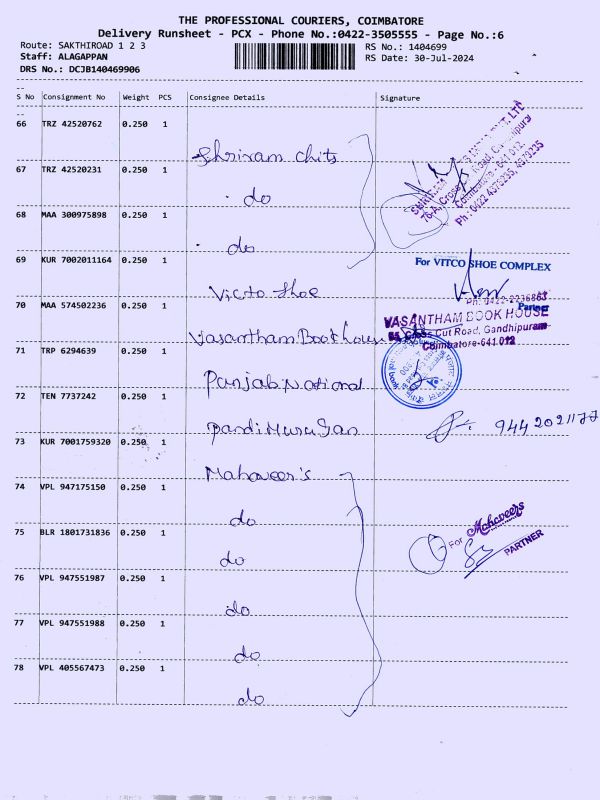 THE PROFESSIONAL COURIERS, COIMBATORE
Delivery Runsheet - PCX - Phone No.:0422-3505555 - Page No.:6
Route: SAKTHIROAD 1 2 3
RS No.: 1404699
Staff: ALAGAPPAN
RS Date: 30-Jul-2024
DRS No.: DCJB140469906
S No Consignment No Weight PCS Consignee Details Signature
66 TRZ 42520762 0.250 1
Shriram chits
67 TRZ 42520231 0.250 1
do
68 MAA 300975898 0.250 1
do
69 KUR 7002011164 0.250 1
Victo Shoe
70 MAA 574502236 0.250 1
Vasantham Book house
71 TRP 6294639 0.250 1
Panjab National
72 TEN 7737242 0.250 1
Pandi Murugan
73 KUR 7001759320 0.250 1
Mahaveer's
74 VPL 947175150 0.250 1
do
75 BLR 1801731836 0.250 1
do
76 VPL 947551987 0.250 1
do
77 VPL 947551988 0.250 1
do
78 VPL 405567473 0.250 1
do
76-A, Cross Cut Road, Gandhipuram
Coimbatore - 641 012.
Ph : 0422 4376235, 4379235
For VITCO SHOE COMPLEX
Partner
Ph: 0422-2236863
VASANTHAM BOOK HOUSE
Cross Cut Road, Gandhipuram
Coimbatore-641 012
For Mahaveers
PARTNER